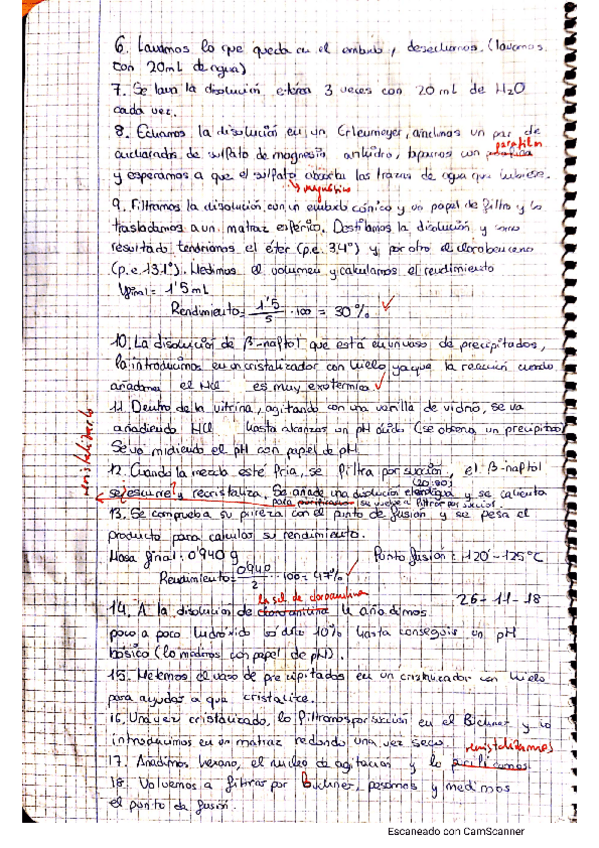 6. Lavamos lo que queda en el embudo y desechamos. (lavamos
con 20mL de agua)
7. Se lava la disolución etérea 3 veces con 20 mL de H2O
cada vez.
8. Echamos la disolución en un Erlenmeyer, añadimos un par de
cucharadas de sulfato de magnesio anhidro, tapamos con parafilm
y esperamos a que el sulfato absorba las trazas de agua que hubiese.
magnésico
9. Filtramos la disolución con un embudo cónico y un papel de filtro y lo
trasladamos a un matraz esférico. Destilamos la disolución y como
resultado tendríamos el éter (p.e. 34°) y por otro el clorobenceno
(p.e. 131°). Medimos el volumen y calculamos el rendimiento
Vfinal = 1'5 mL
Rendimiento = 1'5/5 · 100 = 30% ✓
10. La disolución de β-naftol que está en un vaso de precipitados,
la introducimos en un cristalizador con hielo ya que la reacción cuando
añadamos el HCl es muy exotérmica ✓
11. Dentro de la vitrina, agitando con una varilla de vidrio, se va
añadiendo HCl hasta alcanzar un pH ácido (se observa un precipitado)
Se va midiendo el pH con papel de pH.
12. Cuando la mezcla esté fría, se filtra por succión, el β-naftol
(20:80)
se escurre y recristaliza. Se añade una disolución etanol agua y se calienta
recristalizarlo
para purificarlo se vuelve a filtrar por succión.
13. Se comprueba su pureza con el punto de fusión y se pesa el
producto para calcular su rendimiento.
Masa final: 0'940 g Punto fusión: 120-125°C
Rendimiento = 0'940/2 · 100 = 47% ✓
la sal de cloroanilina 26-11-18
14. A la disolución de cloroanilina le añadimos
poco a poco hidróxido sódico 10% hasta conseguir un pH
básico (lo medimos con papel de pH).
15. Metemos el vaso de precipitados en un cristalizador con hielo
para ayudar a que cristalice.
16. Una vez cristalizado, lo filtramos por succión en el Büchner y lo
introducimos en un matraz redondo una vez seco.
recristalizamos
17. Añadimos hexano, el núcleo de agitación y lo purificamos
18. Volvemos a filtrar por Büchner, pesamos y medimos
el punto de fusión.
Escaneado con CamScanner